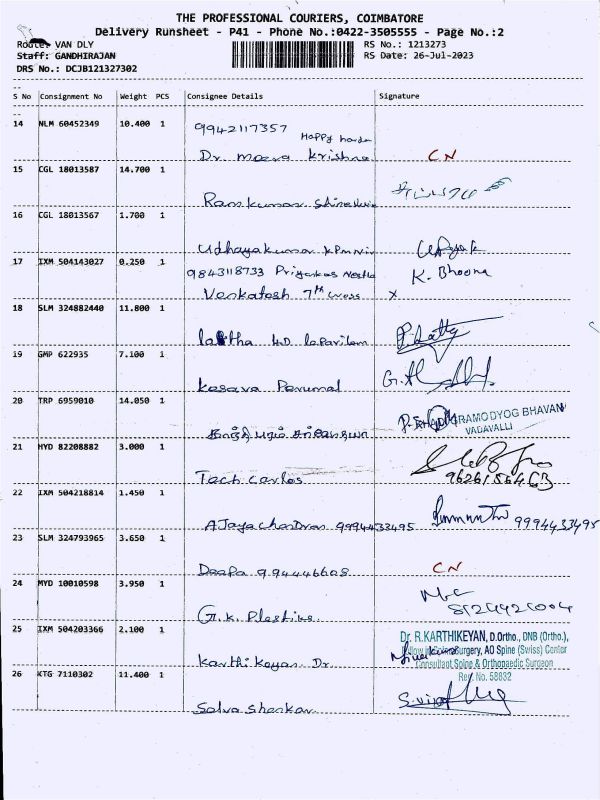 THE PROFESSIONAL COURIERS, COIMBATORE
Delivery Runsheet - P41 - Phone No.:0422-3505555 - Page No.:2
Route: VAN DLY RS No.: 1213273
Staff: GANDHIRAJAN RS Date: 26-Jul-2023
DRS No.: DCJB121327302
S No Consignment No Weight PCS Consignee Details Signature
14 NLM 60452349 10.400 1 9942117357 Happy
Dr. meera krishna CN
15 CGL 18013587 14.700 1
Ramkumar
16 CGL 18013567 1.700 1
Udhayakumar KPmNir
17 IXM 504143027 0.250 1 9843118733 Priyankas Nestle K. Bhoona
Venkatesh 7th cross x
18 SLM 324882440 11.800 1
lalitha
19 GMP 622935 7.100 1
Kesava Perumal
20 TRP 6959010 14.050 1 GRAMODYOG BHAVAN
VADAVALLI
21 HYD 82208882 3.000 1
Tech carlos
22 IXM 504218814 1.450 1
Ajaya chandran 9994433495 9994433495
23 SLM 324793965 3.650 1
Deepa 994446608 CN
24 MYD 10010598 3.950 1
G.K. Plastins
25 IXM 504203366 2.100 1 Dr. R.KARTHIKEYAN, D.Ortho., DNB (Ortho.),
Surgery, AO Spine (Swiss) Center
Karthikeyan Dr. Consultant Spine & Orthopaedic Surgeon
Reg. No. 58832
26 KTG 7110302 11.400 1
Selva Shankar